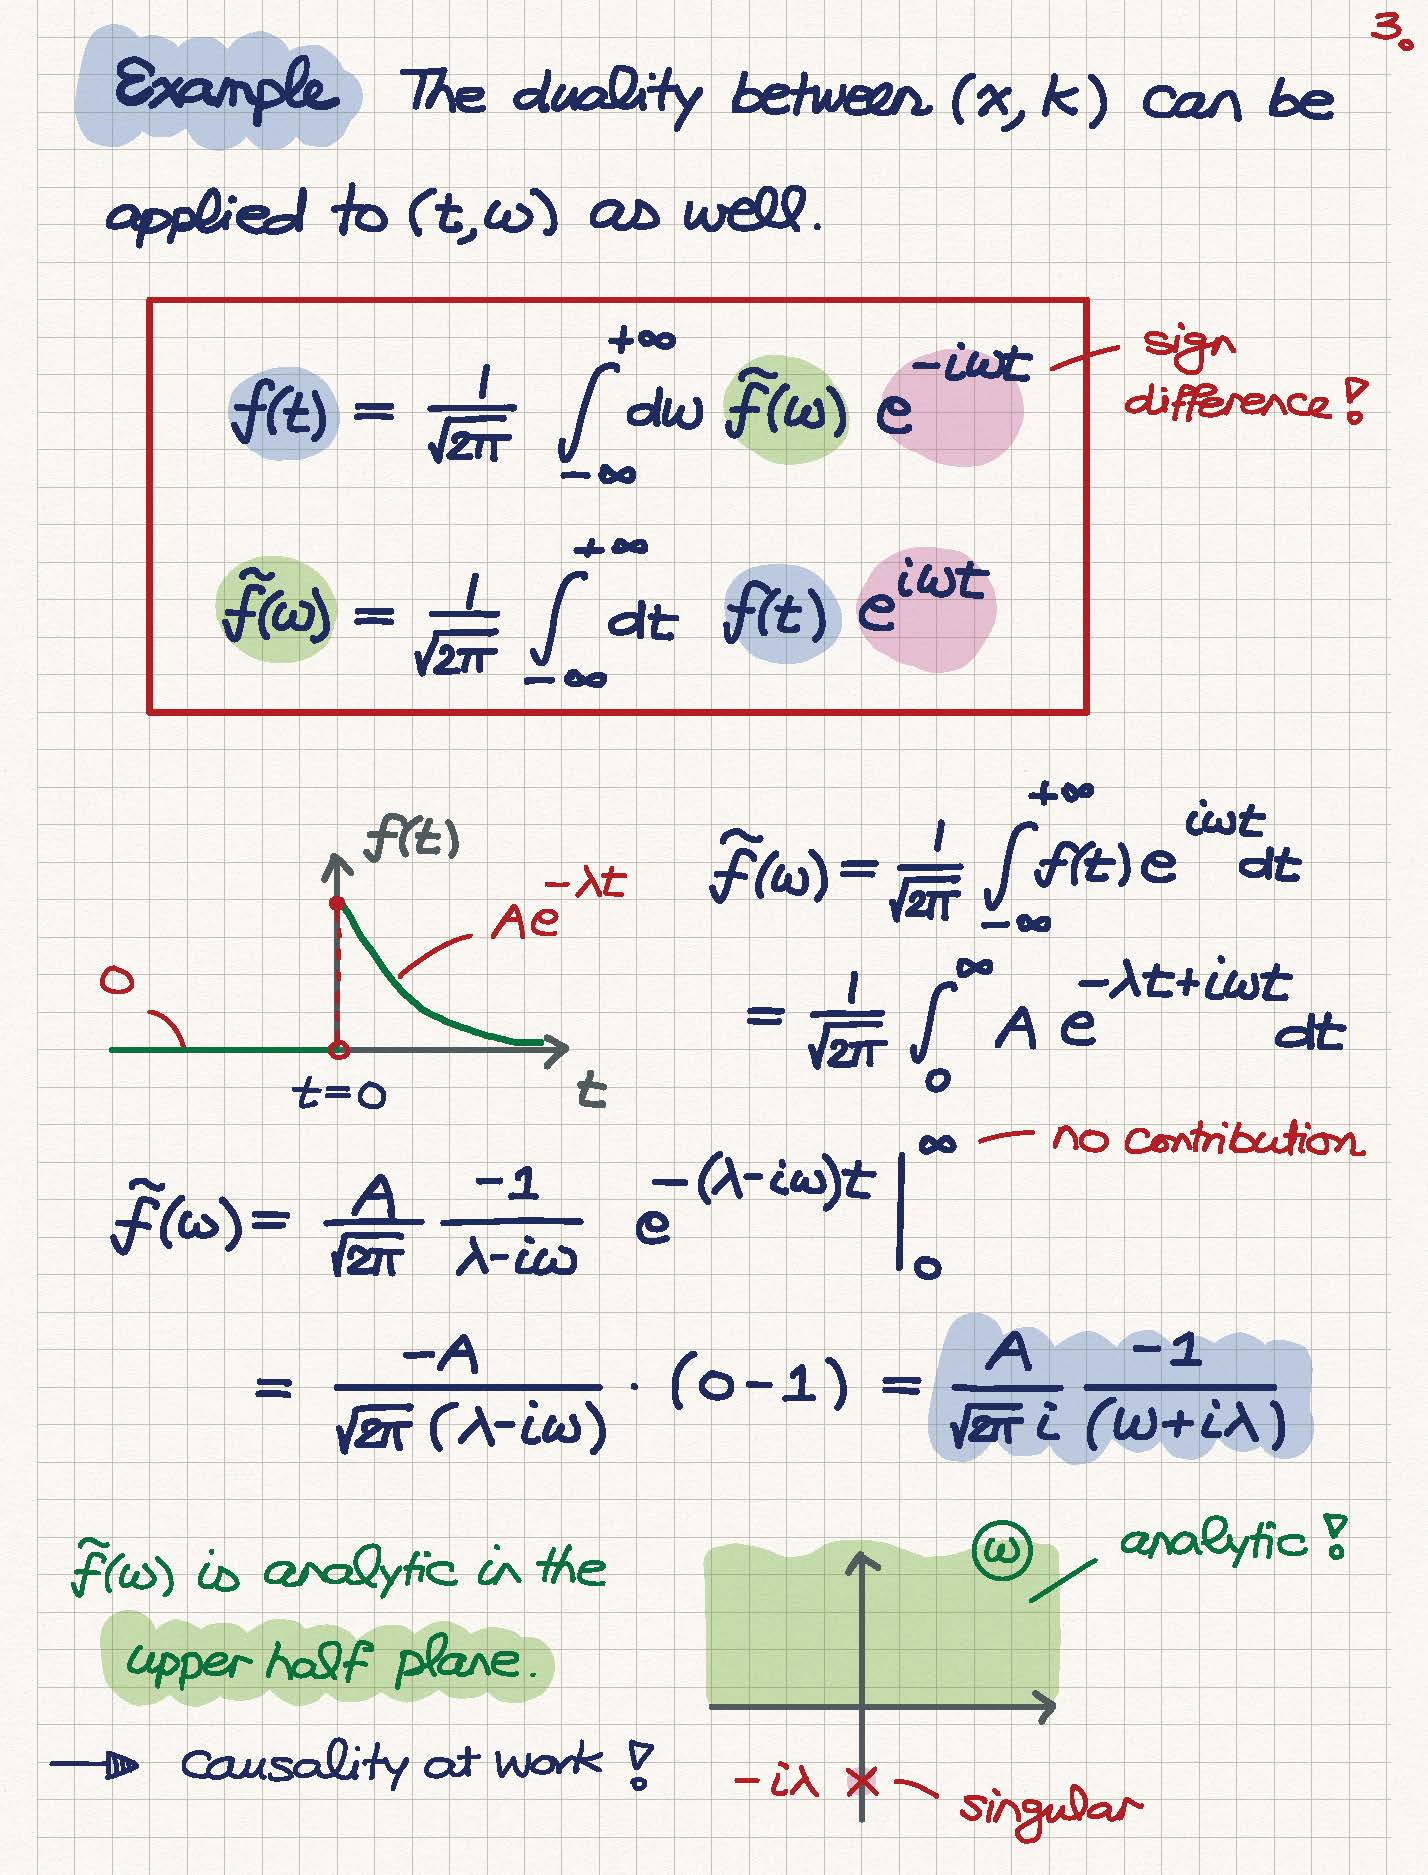 3.
Example The duality between (x, k) can be
applied to (t, ω) as well.
f(t) = 1/√2π ∫_{-∞}^{+∞} dω f̃(ω) e^{-iωt}
sign
difference!
f̃(ω) = 1/√2π ∫_{-∞}^{+∞} dt f(t) e^{iωt}
f(t)
Ae^{-λt}
0
t=0
t
f̃(ω) = 1/√2π ∫_{-∞}^{+∞} f(t) e^{iωt} dt
= 1/√2π ∫_0^∞ A e^{-λt+iωt} dt
f̃(ω) = A/√2π -1/λ-iω e^{-(λ-iω)t} |_0^∞
no contribution
= -A/√2π (λ-iω) · (0-1) = A/√2π i -1/(ω+iλ)
f̃(ω) is analytic in the
upper half plane.
→ Causality at work!
ω
analytic!
-iλ
singular